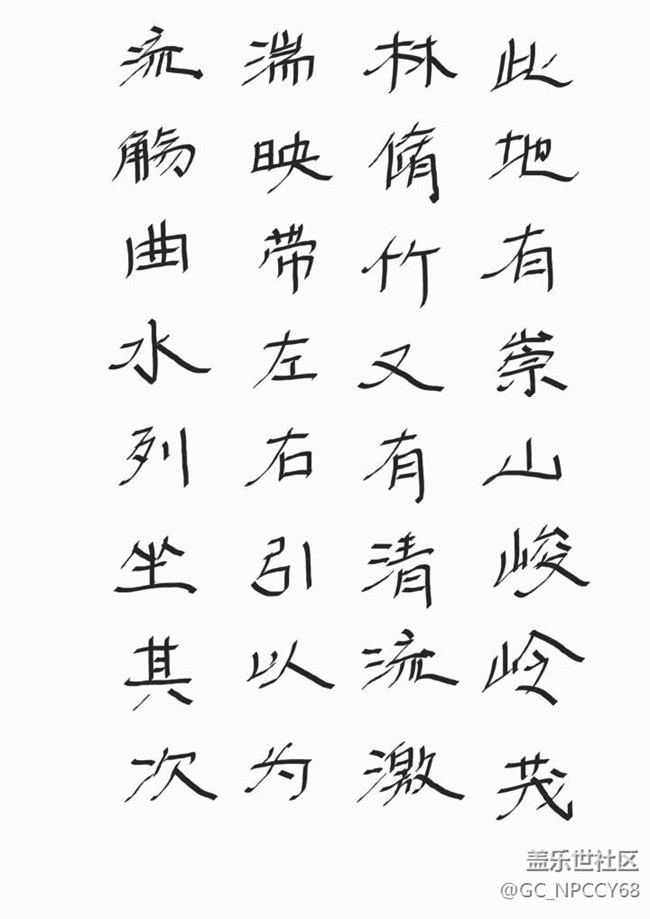 此地有崇山峻岭茂
林脩竹又有清流激
湍映带左右引以为
流觞曲水列坐其次
盖乐世社区
@GC_NPCCY68